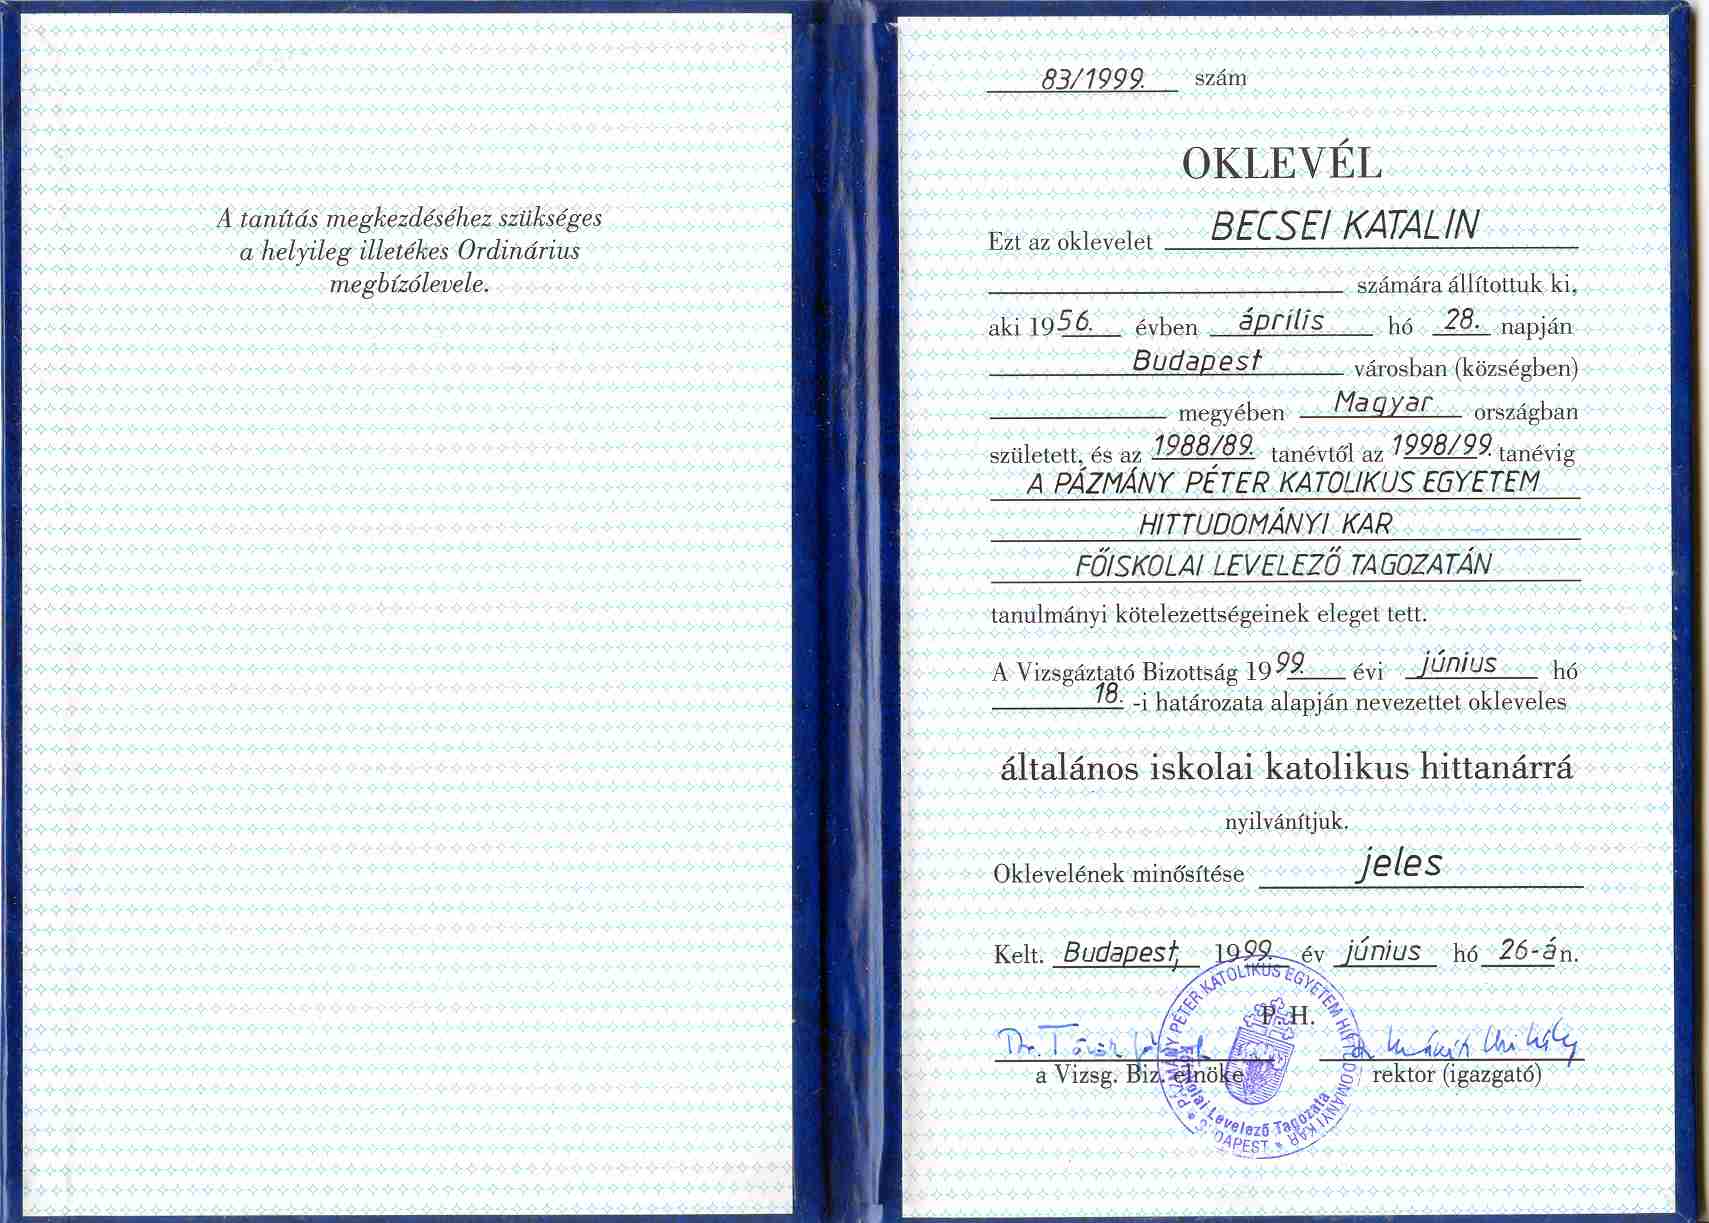 A tanítás megkezdéséhez szükséges
a helyileg illetékes Ordinárius
megbízólevele.
83/1999. szám
OKLEVÉL
Ezt az oklevelet BECSEI KATALIN
számára állítottuk ki,
aki 1956. évben április hó 28. napján
Budapest városban (községben)
megyében Magyar országban
született, és az 1988/89. tanévtől az 1998/99. tanévig
A PÁZMÁNY PÉTER KATOLIKUS EGYETEM
HITTUDOMÁNYI KAR
FŐISKOLAI LEVELEZŐ TAGOZATÁN
tanulmányi kötelezettségeinek eleget tett.
A Vizsgáztató Bizottság 1999. évi június hó
18. -i határozata alapján nevezettet okleveles
általános iskolai katolikus hittanárrá
nyilvánítjuk.
Oklevelének minősítése jeles
Kelt. Budapest, 1999. év június hó 26-án.
P. H.
Dr.
Mihály
a Vizsg. Biz. elnöke
rektor (igazgató)
PÁZMÁNY PÉTER KATOLIKUS EGYETEM HITTUDOMÁNYI KAR
Főiskolai Levelező Tagozata
BUDAPEST